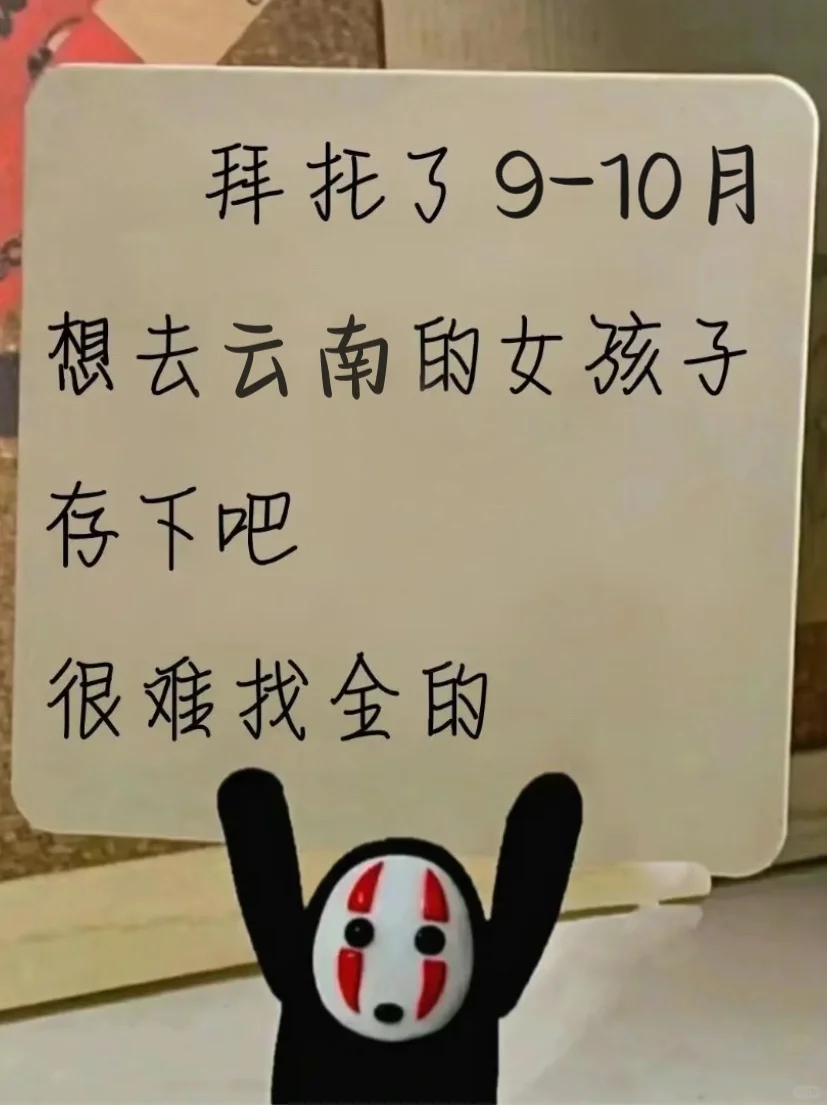 拜托了9-10月
想去云南的女孩子
存下吧
很难找全的